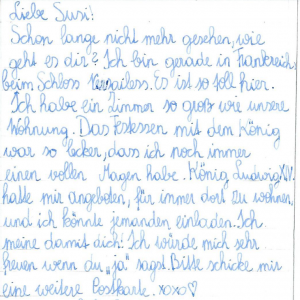 Liebe Susi!
Schon lange nicht mehr gesehen, wie
geht es dir? Ich bin gerade in Frankreich
beim Schloss Versailess. Es ist so toll hier.
Ich habe ein Zimmer so groß wie unsere
Wohnung. Das Festessen mit dem König
war so lecker, dass ich noch immer
einen vollen Magen habe. König Ludwig XIV.
hatte mir angeboten, für immer dort zu wohnen,
und ich könnte jemanden einladen. Ich
meine damit dich! Ich würde mich sehr
freuen wenn du „ja" sagst. Bitte schicke mir
eine weitere Postkarte. xoxo♡